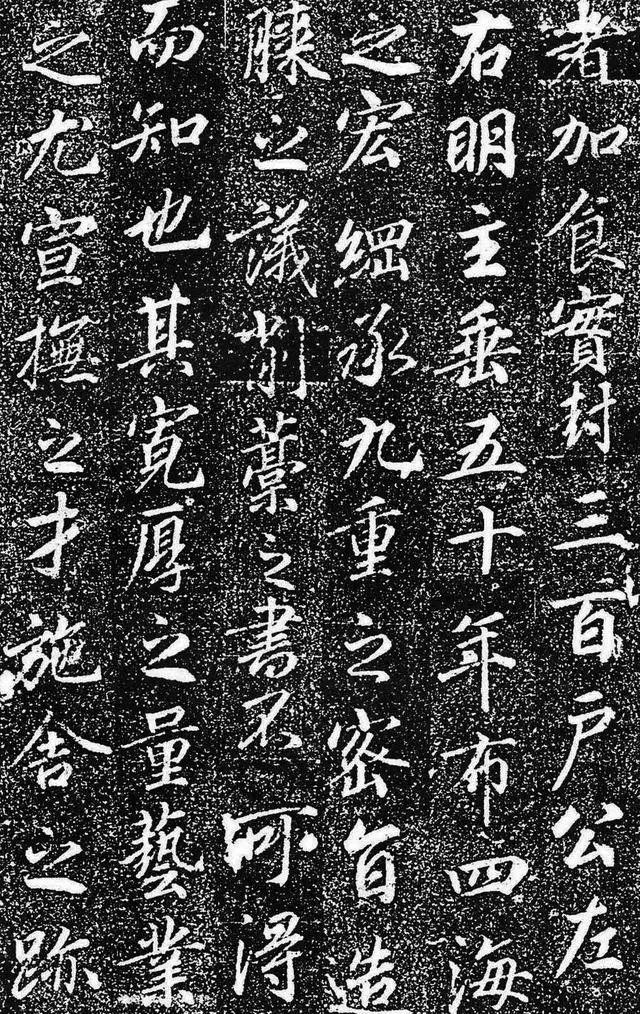 者加食實封三百户公左
右明主垂五十年布四海
之宏綱承九重之密旨造
膝之議削藁之書不可得
而知也其寬厚之量藝業
之尤宣撫之才施舍之跡